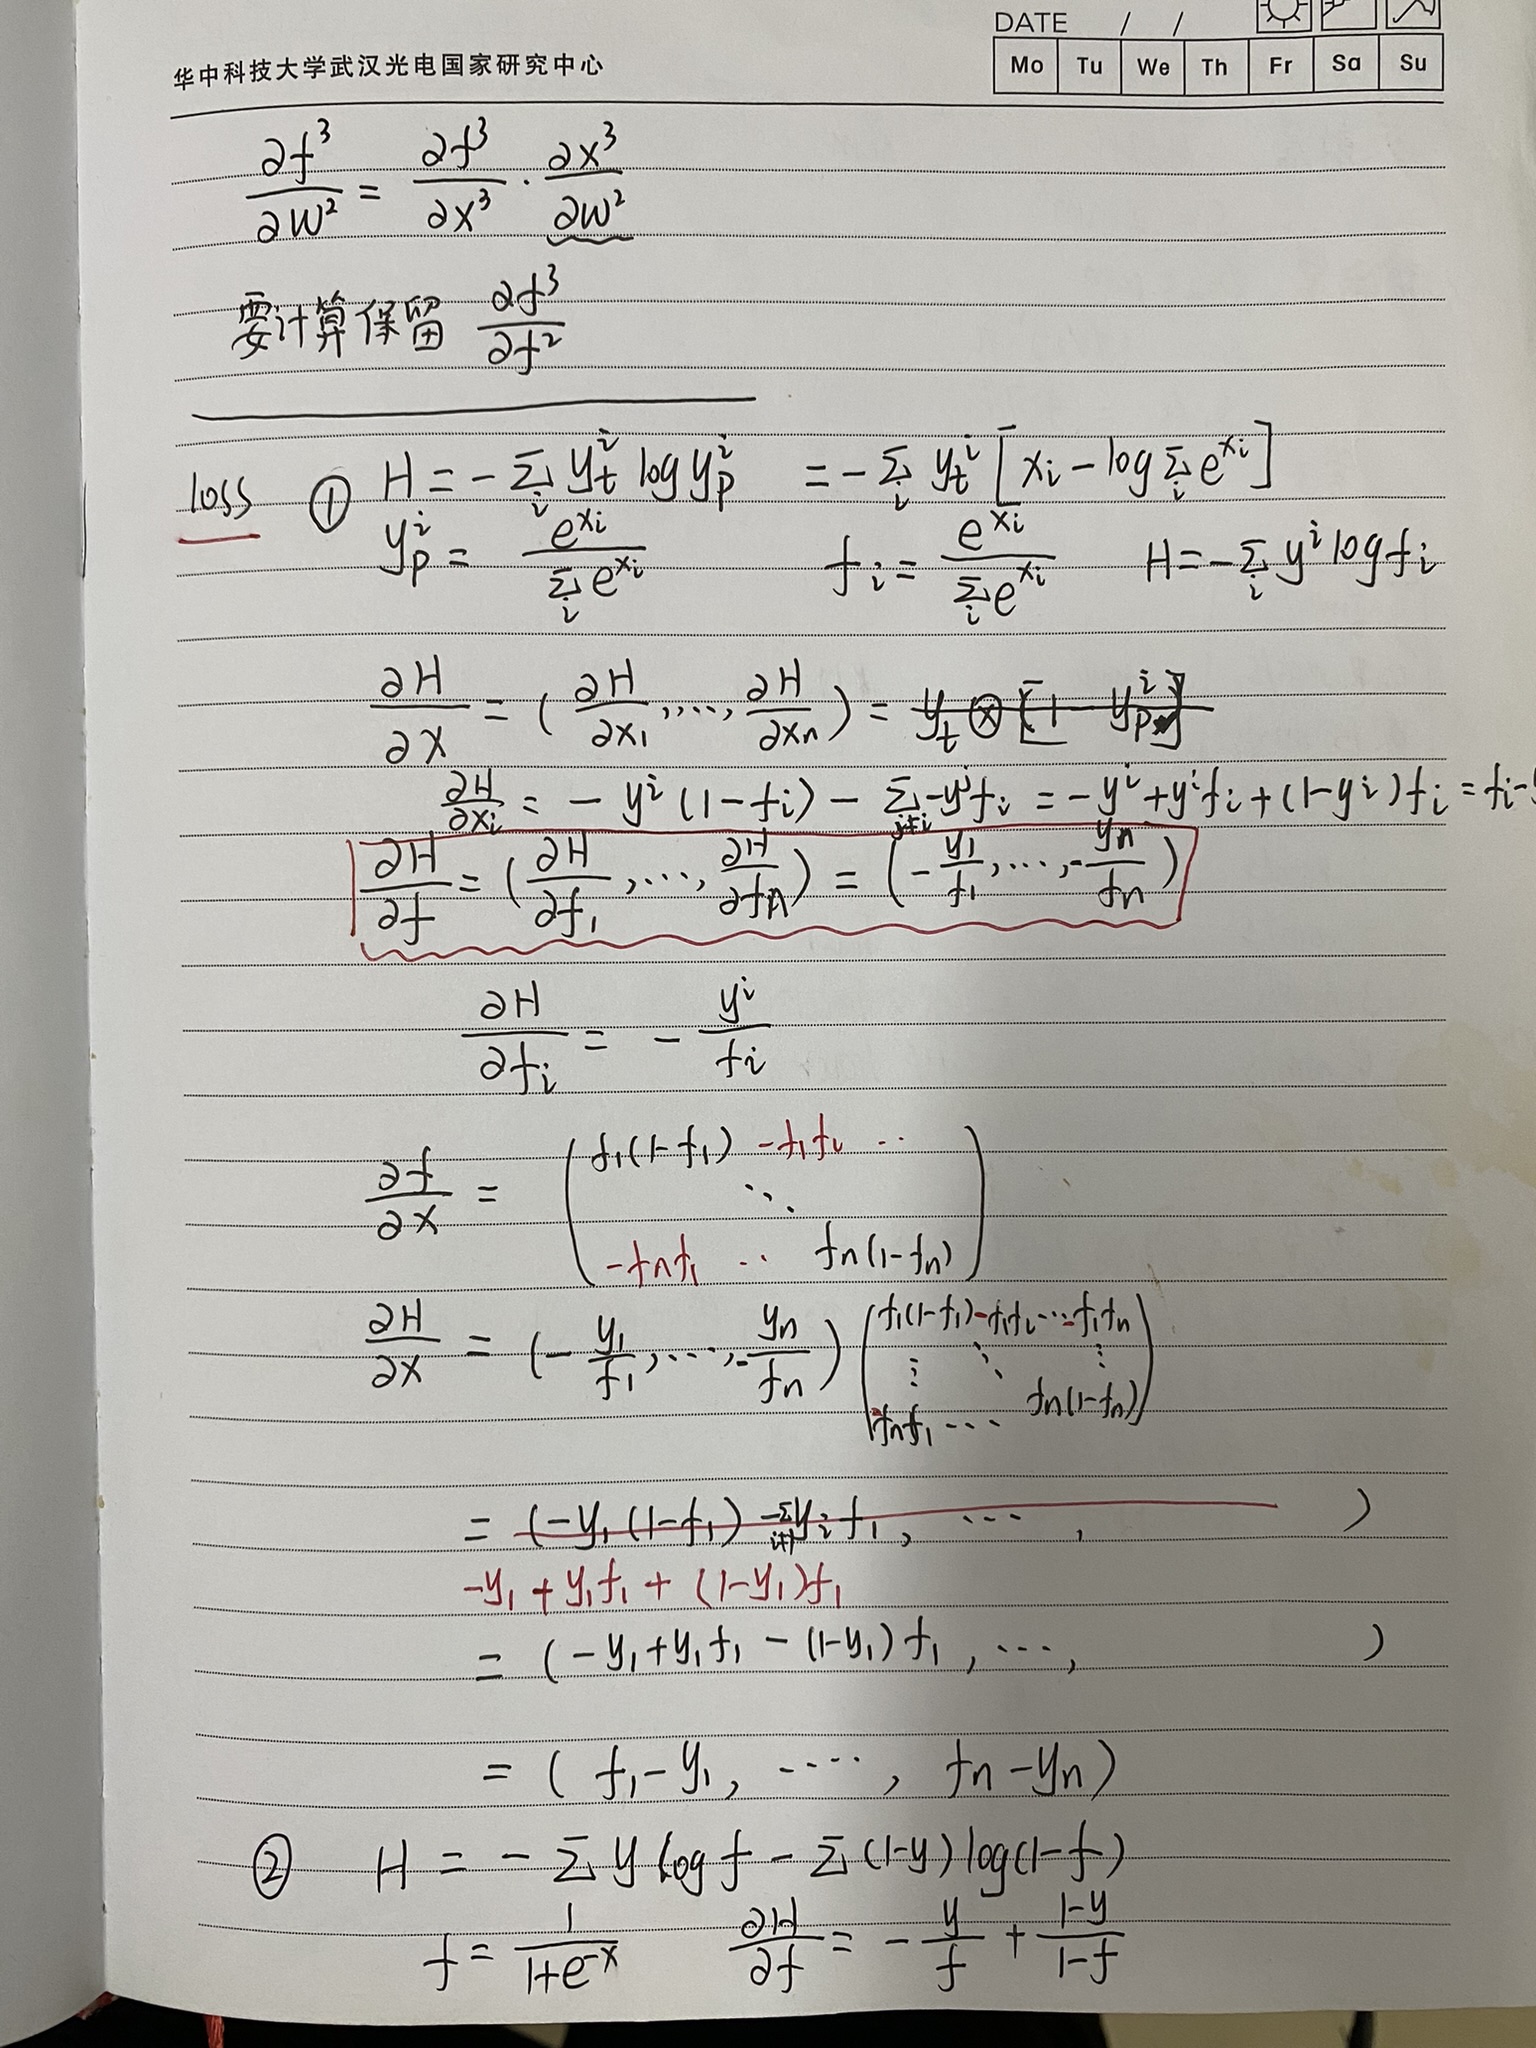 DATE / /
华中科技大学武汉光电国家研究中心
Mo Tu We Th Fr Sa Su
∂f³/∂W² = ∂f³/∂X³ · ∂X³/∂W²
要计算保留 ∂f³/∂f²
loss ① H = -Σ_i y_t^i log y_p^i = -Σ_i y_t^i [x_i - log Σ_i e^{x_i}]
y_p^i = e^{x_i}/Σ_i e^{x_i} f_i = e^{x_i}/Σ_i e^{x_i} H = -Σ_i y^i log f_i
∂H/∂X = (∂H/∂x_1, ..., ∂H/∂x_n) = y_t ⊗ [1 - y_p^i]
∂H/∂x_i = -y^i(1-f_i) - Σ_{j≠i} -y^j f_i = -y^i + y^i f_i + (1-y^i) f_i = f_i -
∂H/∂f = (∂H/∂f_1, ..., ∂H/∂f_n) = (-y_1/f_1, ..., -y_n/f_n)
∂H/∂f_i = -y^i/f_i
∂f/∂X = ( f_1(1-f_1) -f_1f_2 ..
⋱
-f_nf_1 .. f_n(1-f_n) )
∂H/∂X = (-y_1/f_1, ..., -y_n/f_n) ( f_1(1-f_1) -f_1f_2 ... -f_1f_n
⋮ ⋱ ⋮
-f_nf_1 ... f_n(1-f_n) )
= (-y_1(1-f_1) -Σ_{i≠1} y_i f_1, ..., )
-y_1 + y_1f_1 + (1-y_1)f_1
= (-y_1 + y_1f_1 - (1-y_1)f_1, ..., )
= (f_1 - y_1, ...., f_n - y_n)
② H = -Σ y log f - Σ (1-y) log(1-f)
f = 1/(1+e^{-x}) ∂H/∂f = -y/f + (1-y)/(1-f)